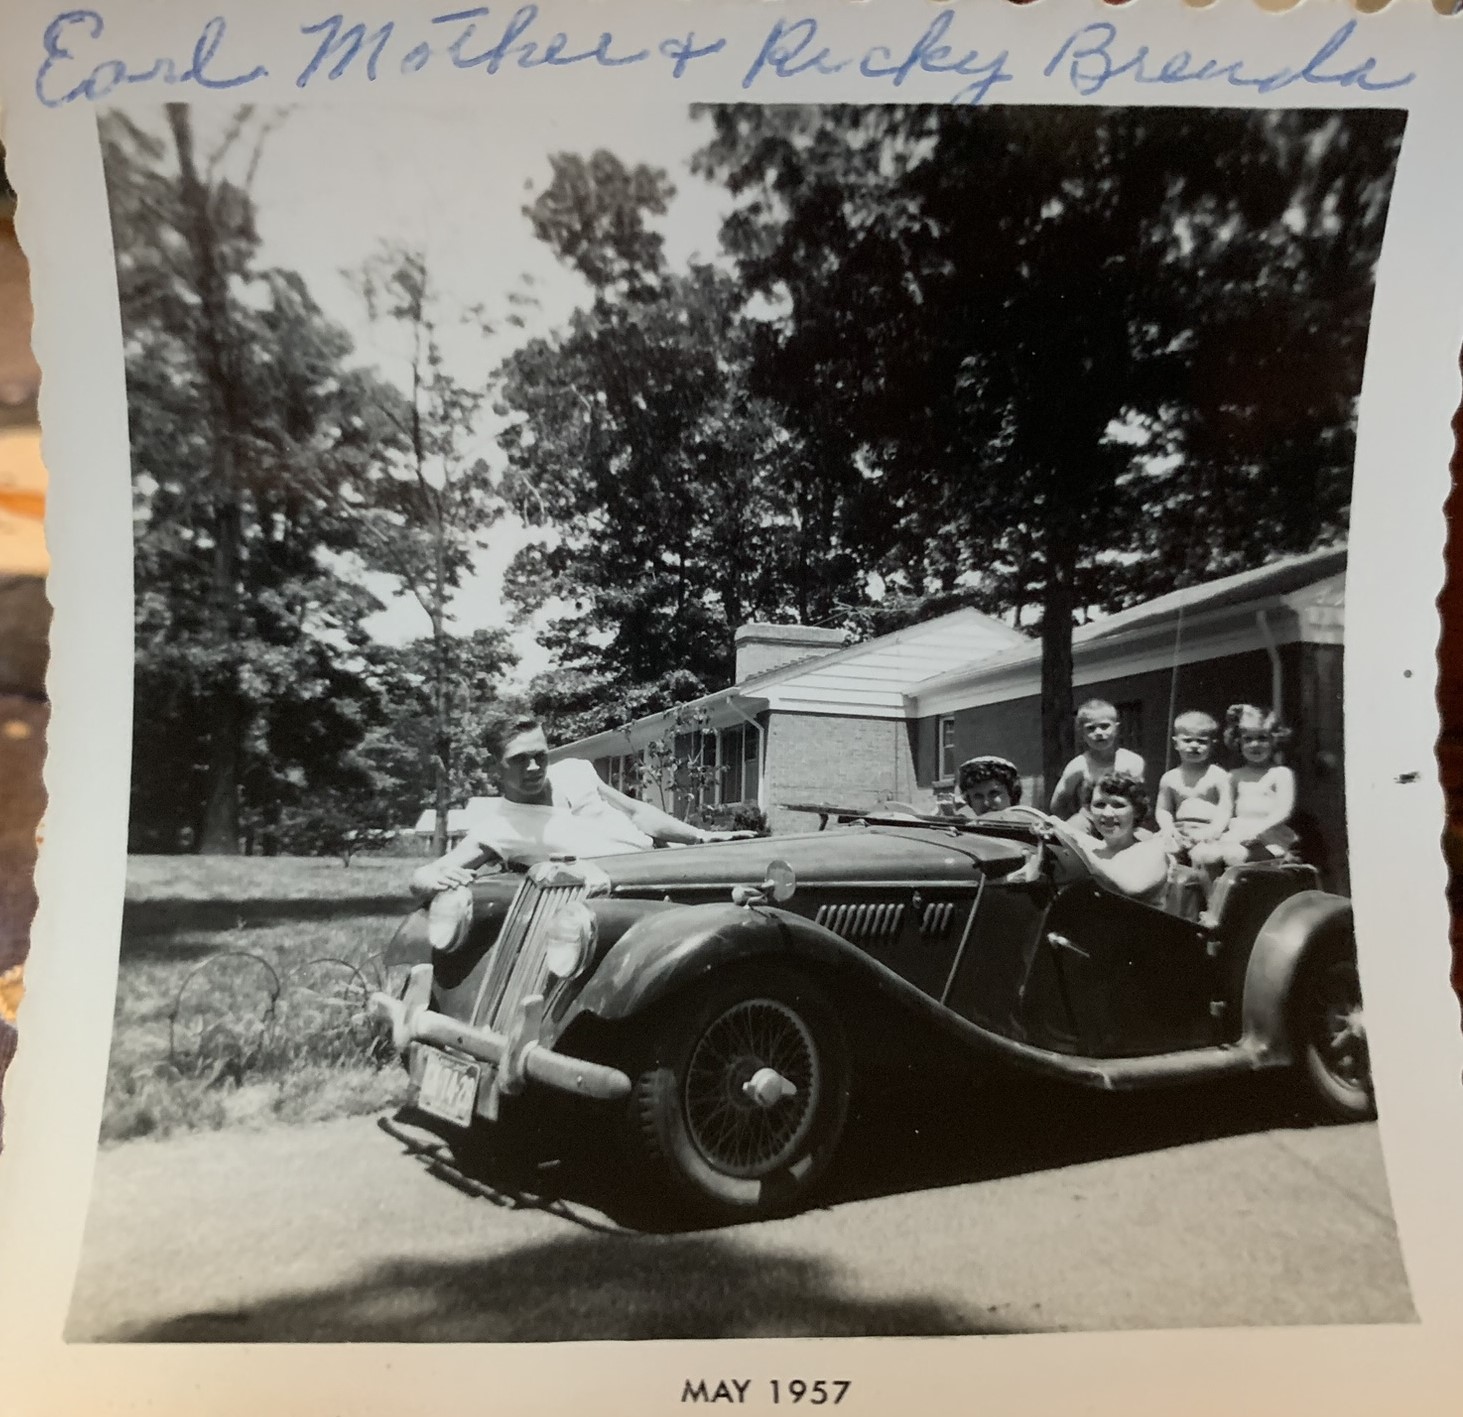 Earl Mother & Ricky Brenda
MAY 1957